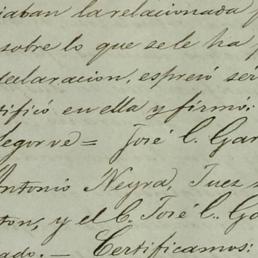 iaban la relacionada
sobre lo que se le ha p
declaracion, espresó ser
tificó en ella y firmó.
Segorve = José C. Gar
Antonio Neyra, Juez
ton, y el C. José C. Ga
ado. — Certificamos: